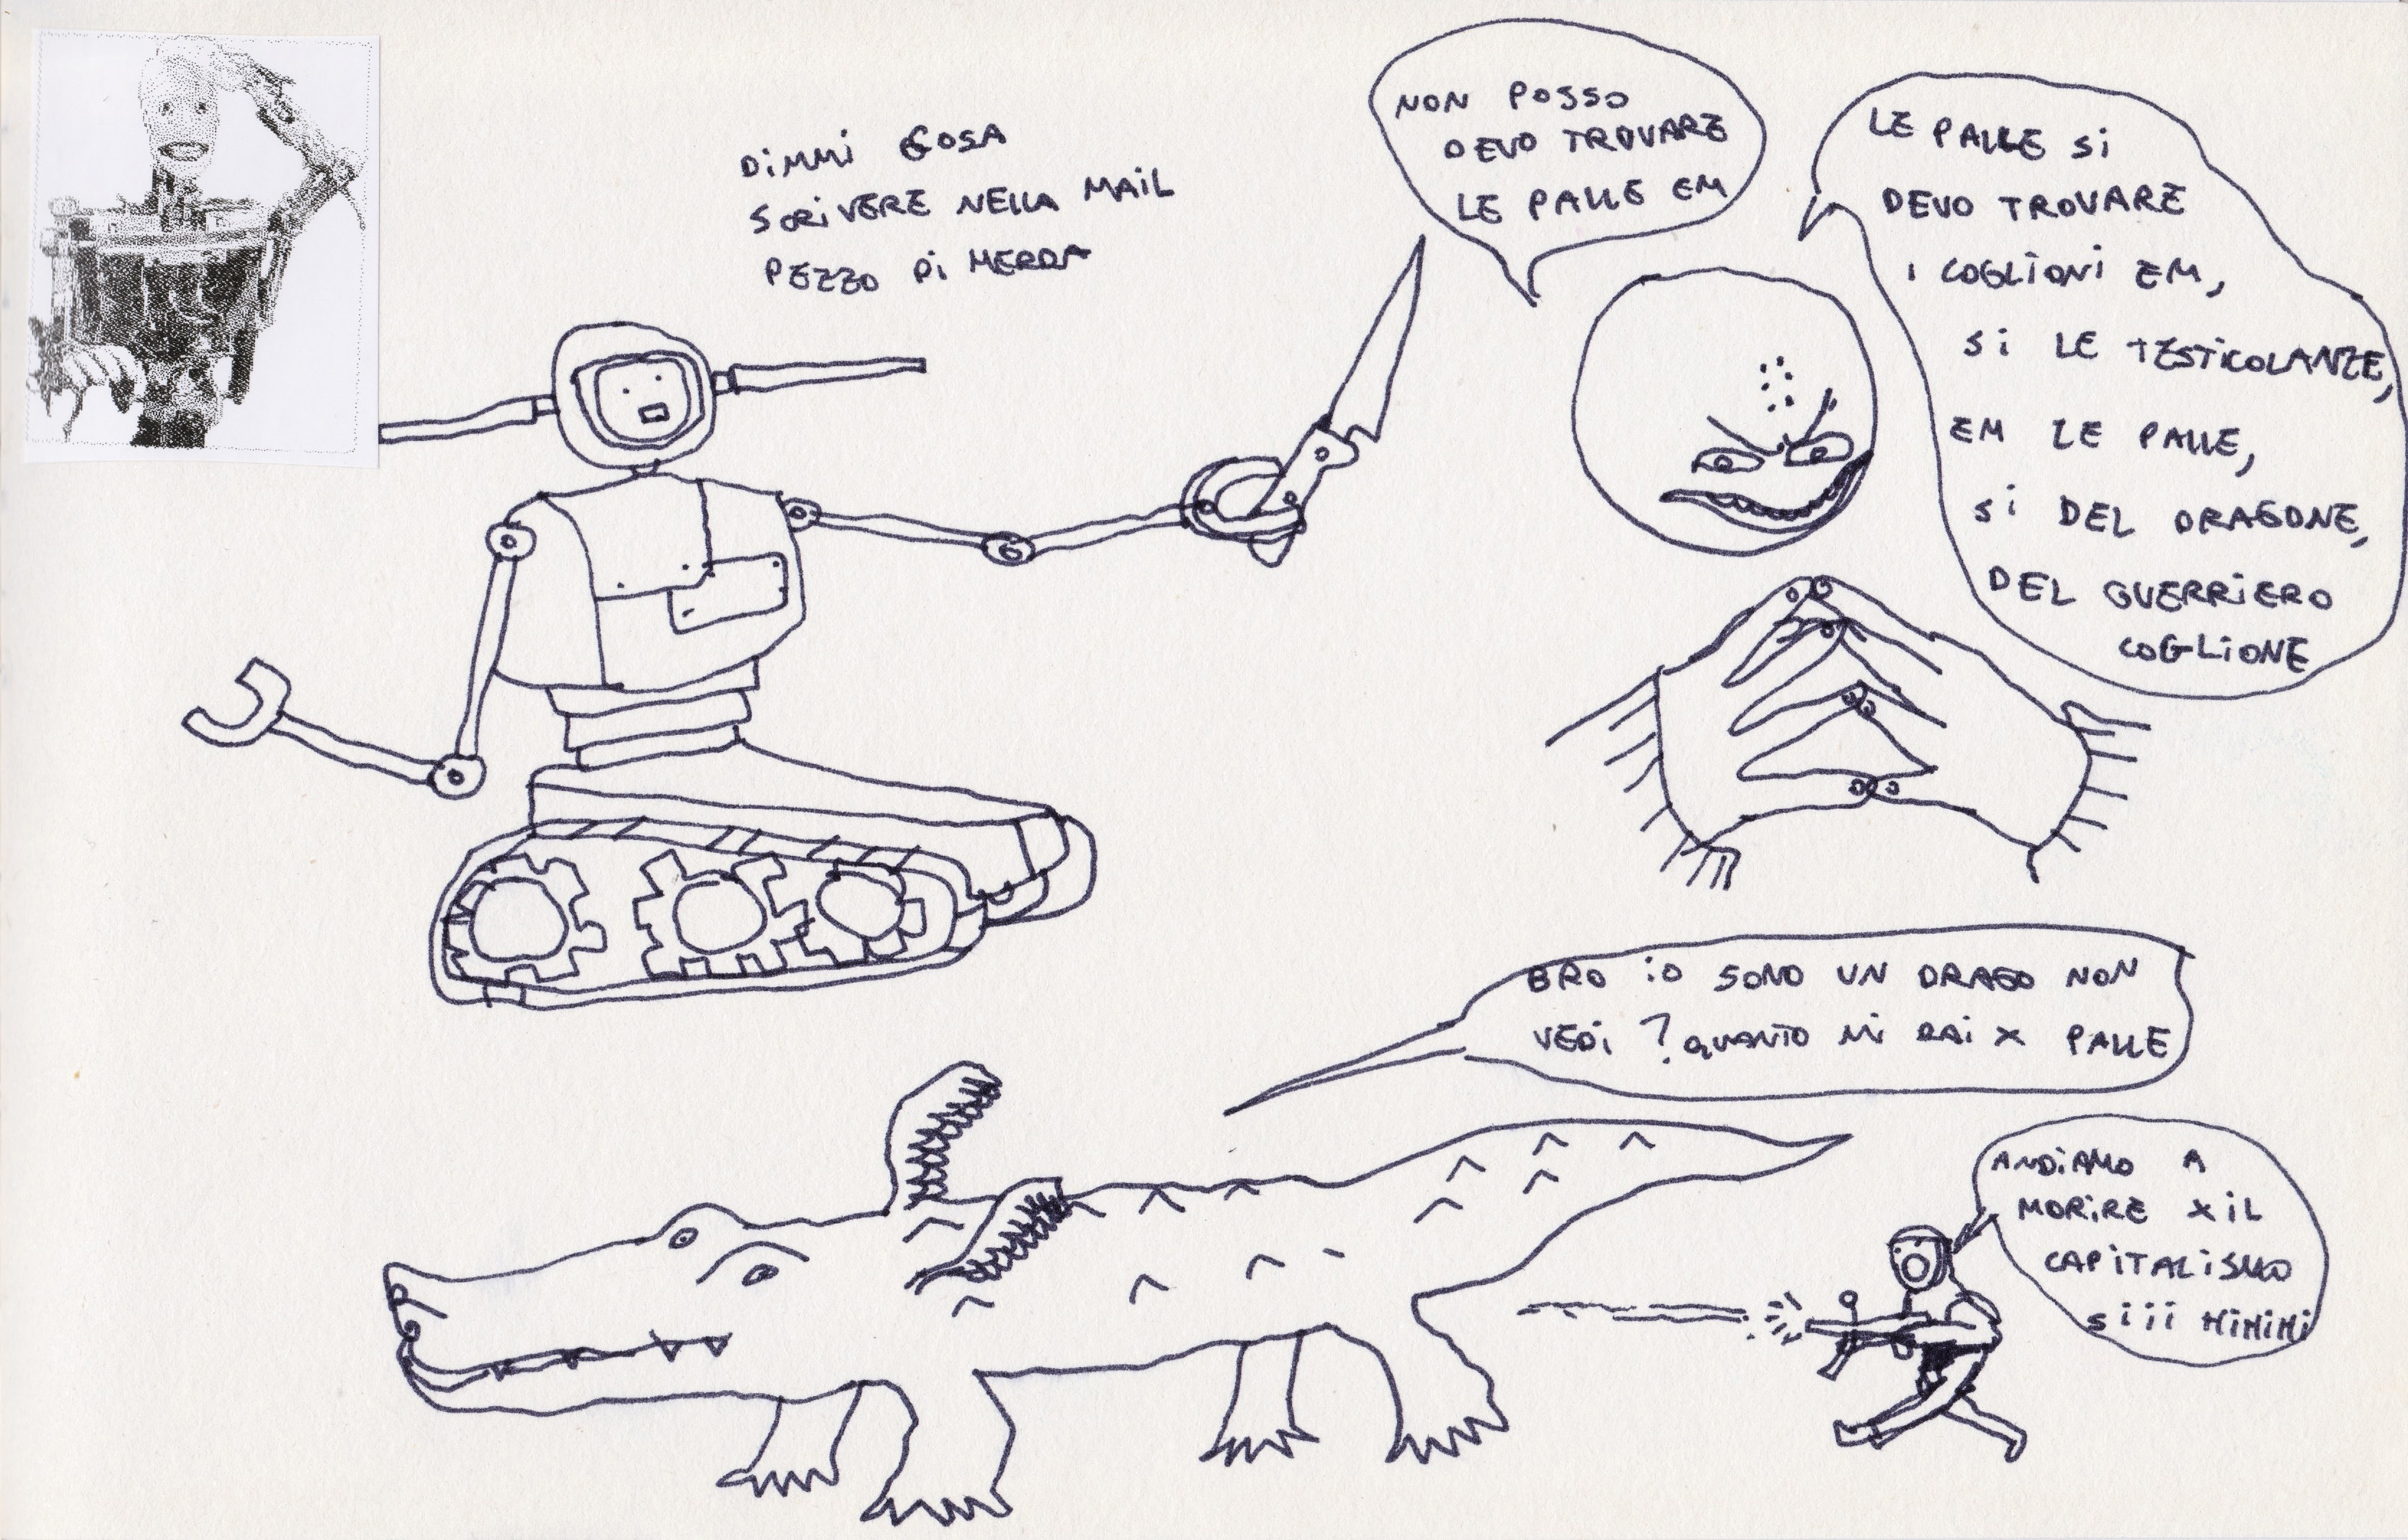 DIMMI COSA
SCRIVERE NELLA MAIL
PEZZO DI MERDA
NON POSSO
DEVO TROVARE
LE PALLE EM
LE PALLE SI
DEVO TROVARE
I COGLIONI EM,
SI LE TESTICOLANZE,
EM LE PALLE,
SI DEL DRAGONE,
DEL GUERRIERO
COGLIONE
BRO IO SONO UN DRAGO NON
VEDI ? QUANTO MI DAI X PALLE
ANDIAMO A
MORIRE X IL
CAPITALISMO
SIII MIMIMI